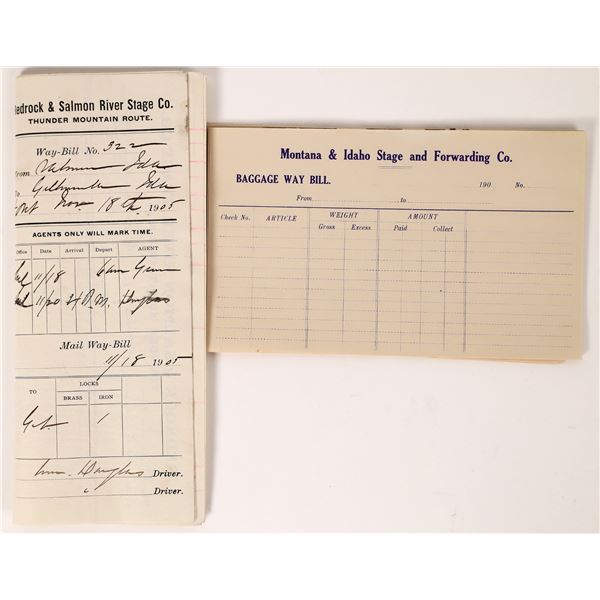 edrock & Salmon River Stage Co.
THUNDER MOUNTAIN ROUTE.
Way-Bill No. 322
From Salmon Ida
To Gibbonsville Ida
Nov. 18th 1905
AGENTS ONLY WILL MARK TIME.
Office Date Arrival Depart AGENT
11/18 6am
11/20 4 P.M. Douglas
Mail Way-Bill
11/18 1905
TO LOCKS
BRASS IRON
1
Wm. Douglas Driver.
Driver.
Montana & Idaho Stage and Forwarding Co.
BAGGAGE WAY BILL. 190 No.
From to
Check No. ARTICLE WEIGHT AMOUNT
Gross Excess Paid Collect